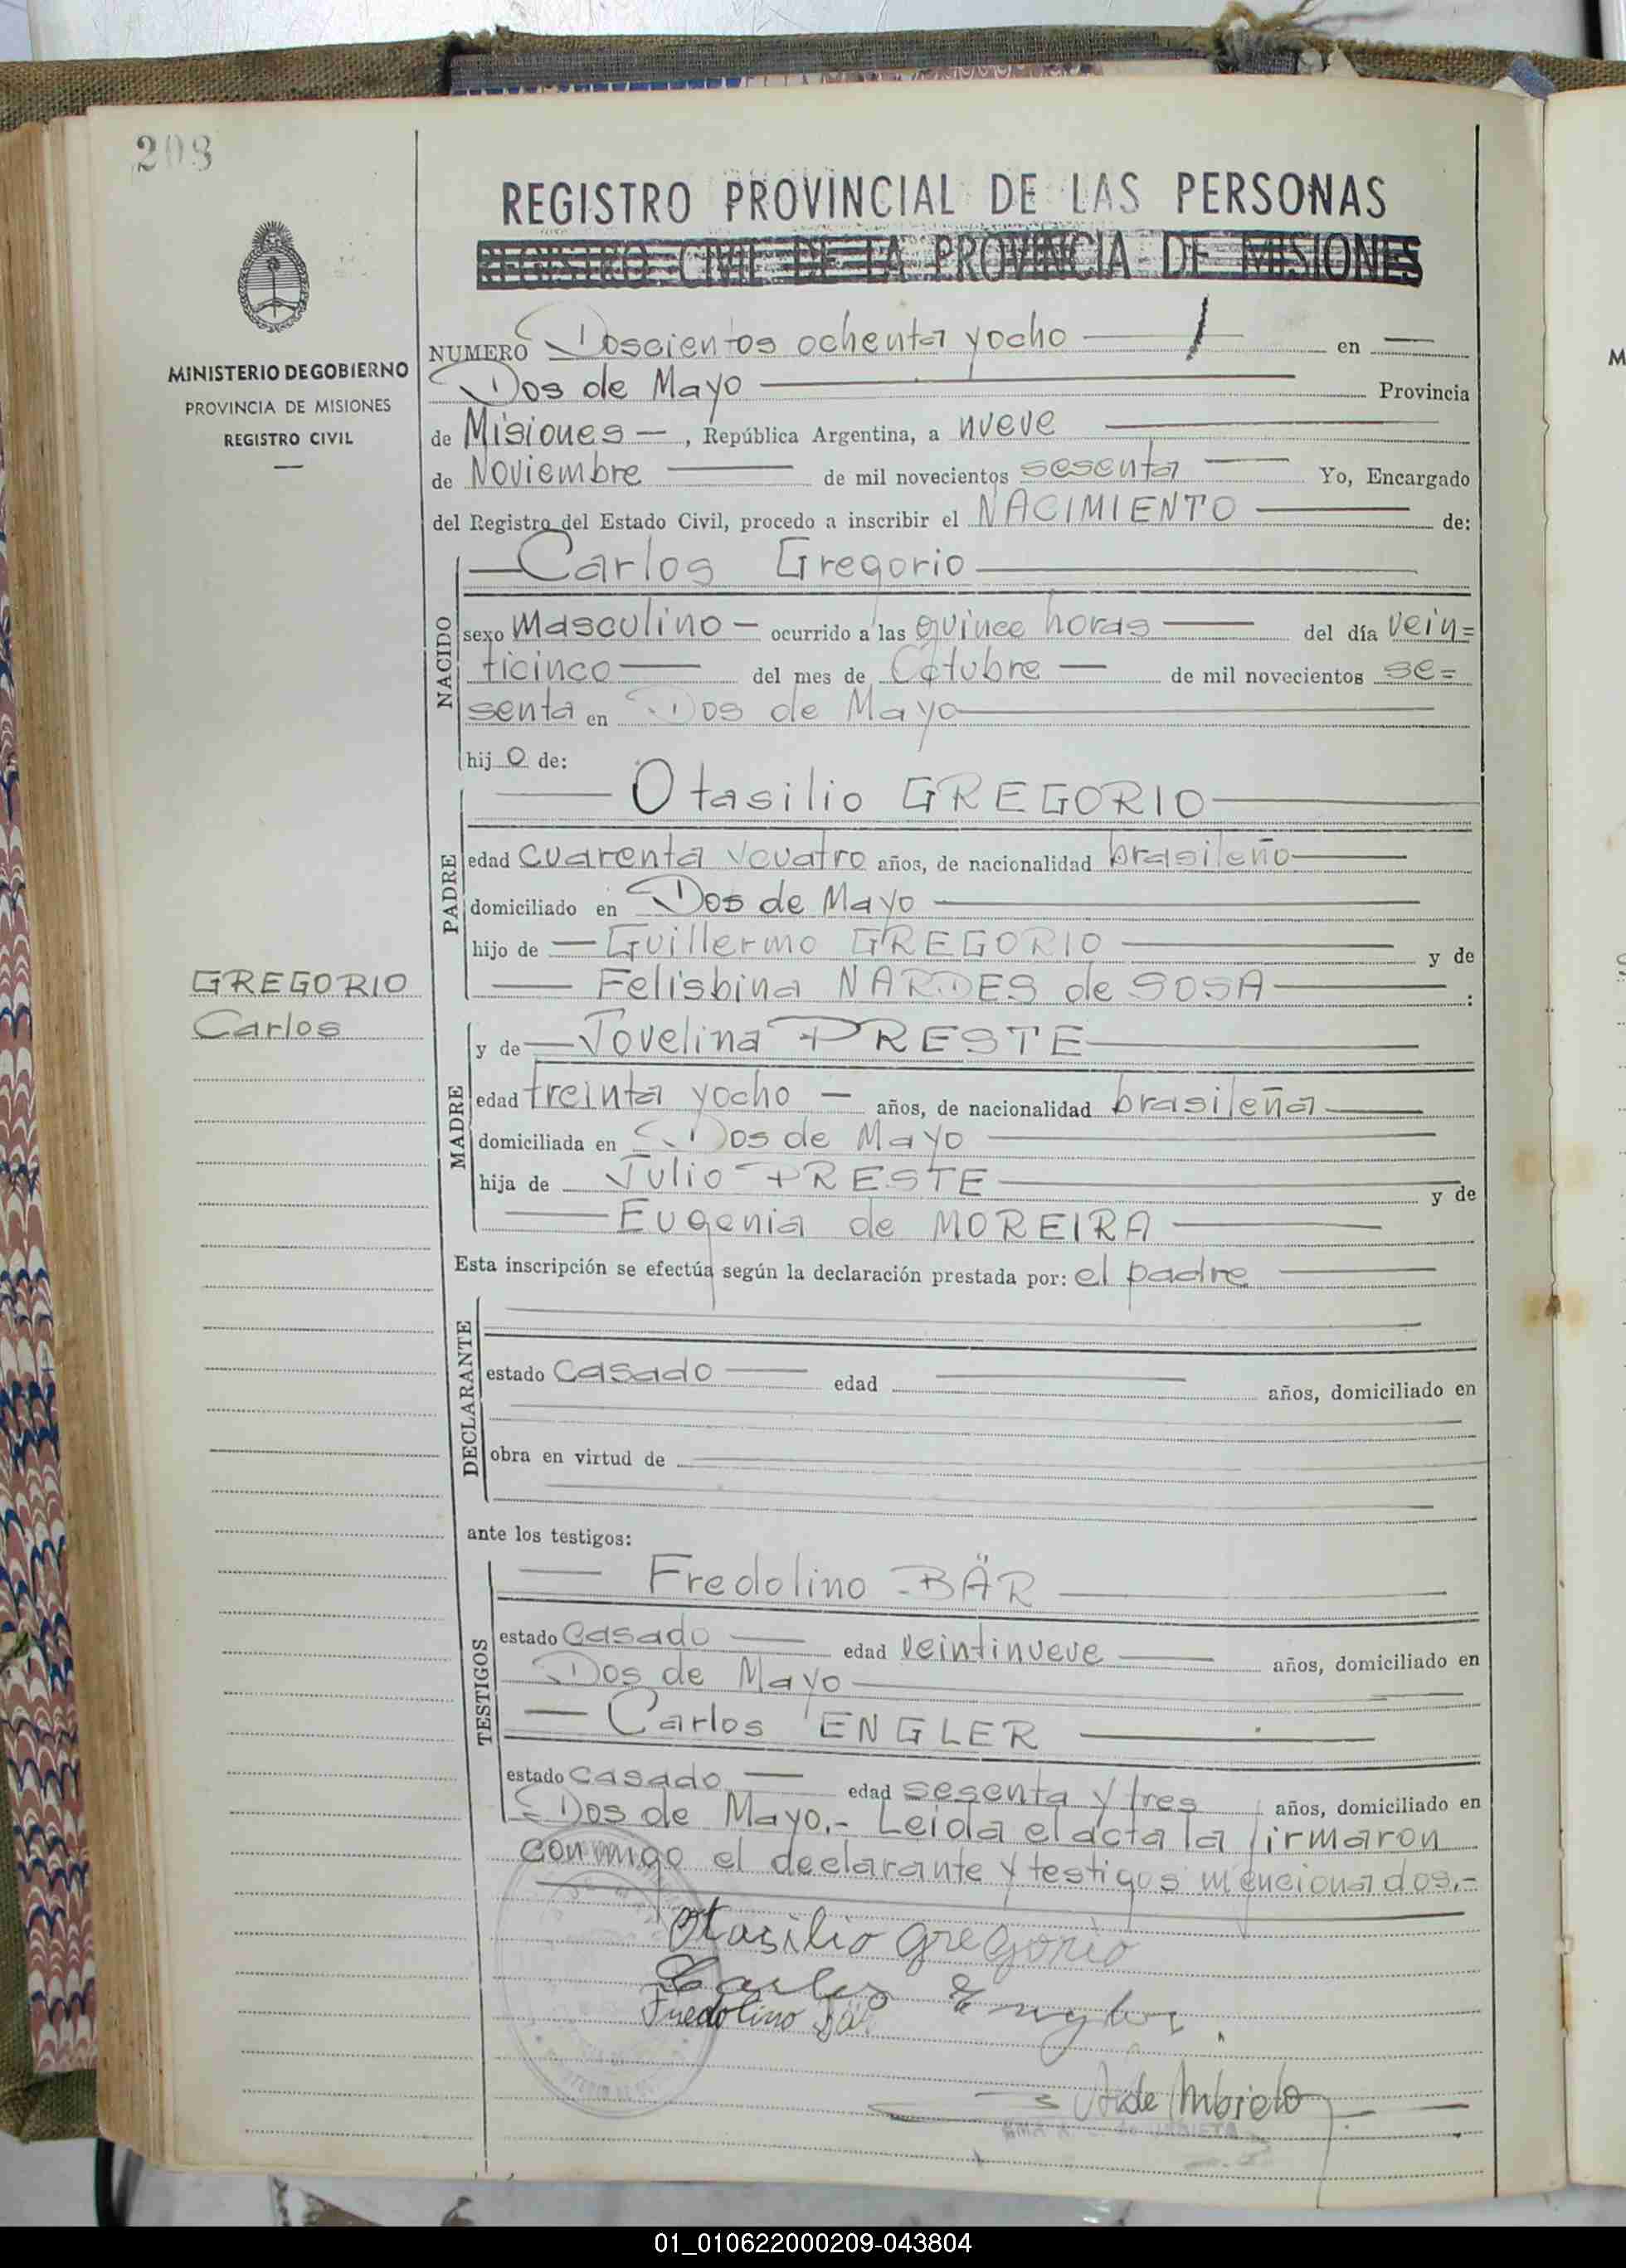 208
REGISTRO PROVINCIAL DE LAS PERSONAS
REGISTRO CIVIL DE LA PROVINCIA DE MISIONES
MINISTERIO DE GOBIERNO
PROVINCIA DE MISIONES
REGISTRO CIVIL
NUMERO Doscientos ochenta y ocho en
Dos de Mayo Provincia
de Misiones , República Argentina, a nueve
de Noviembre de mil novecientos sesenta Yo, Encargado
del Registro del Estado Civil, procedo a inscribir el NACIMIENTO de:
NACIDO
Carlos Gregorio
sexo Masculino ocurrido a las quince horas del día vein=
ticinco del mes de Octubre de mil novecientos se=
senta en Dos de Mayo
hij o de:
PADRE
Otasilio GREGORIO
edad cuarenta y cuatro años, de nacionalidad brasileño
domiciliado en Dos de Mayo
hijo de Guillermo GREGORIO y de
Felisbina NARDES de SOSA :
GREGORIO
Carlos
MADRE
y de Jovelina PRESTE
edad treinta y ocho años, de nacionalidad brasileña
domiciliada en Dos de Mayo
hija de Julio PRESTE y de
Eugenia de MOREIRA
Esta inscripción se efectúa según la declaración prestada por: el padre
DECLARANTE
estado casado edad años, domiciliado en
obra en virtud de
ante los testigos:
TESTIGOS
Fredolino BÄR
estado casado edad veintinueve años, domiciliado en
Dos de Mayo
Carlos ENGLER
estado casado edad sesenta y tres años, domiciliado en
Dos de Mayo.- Leida el acta la firmaron
conmigo el declarante y testigos mencionados.-
Otasilio gregorio
Carlos Engler
Fredolino Bär
01_010622000209-043804